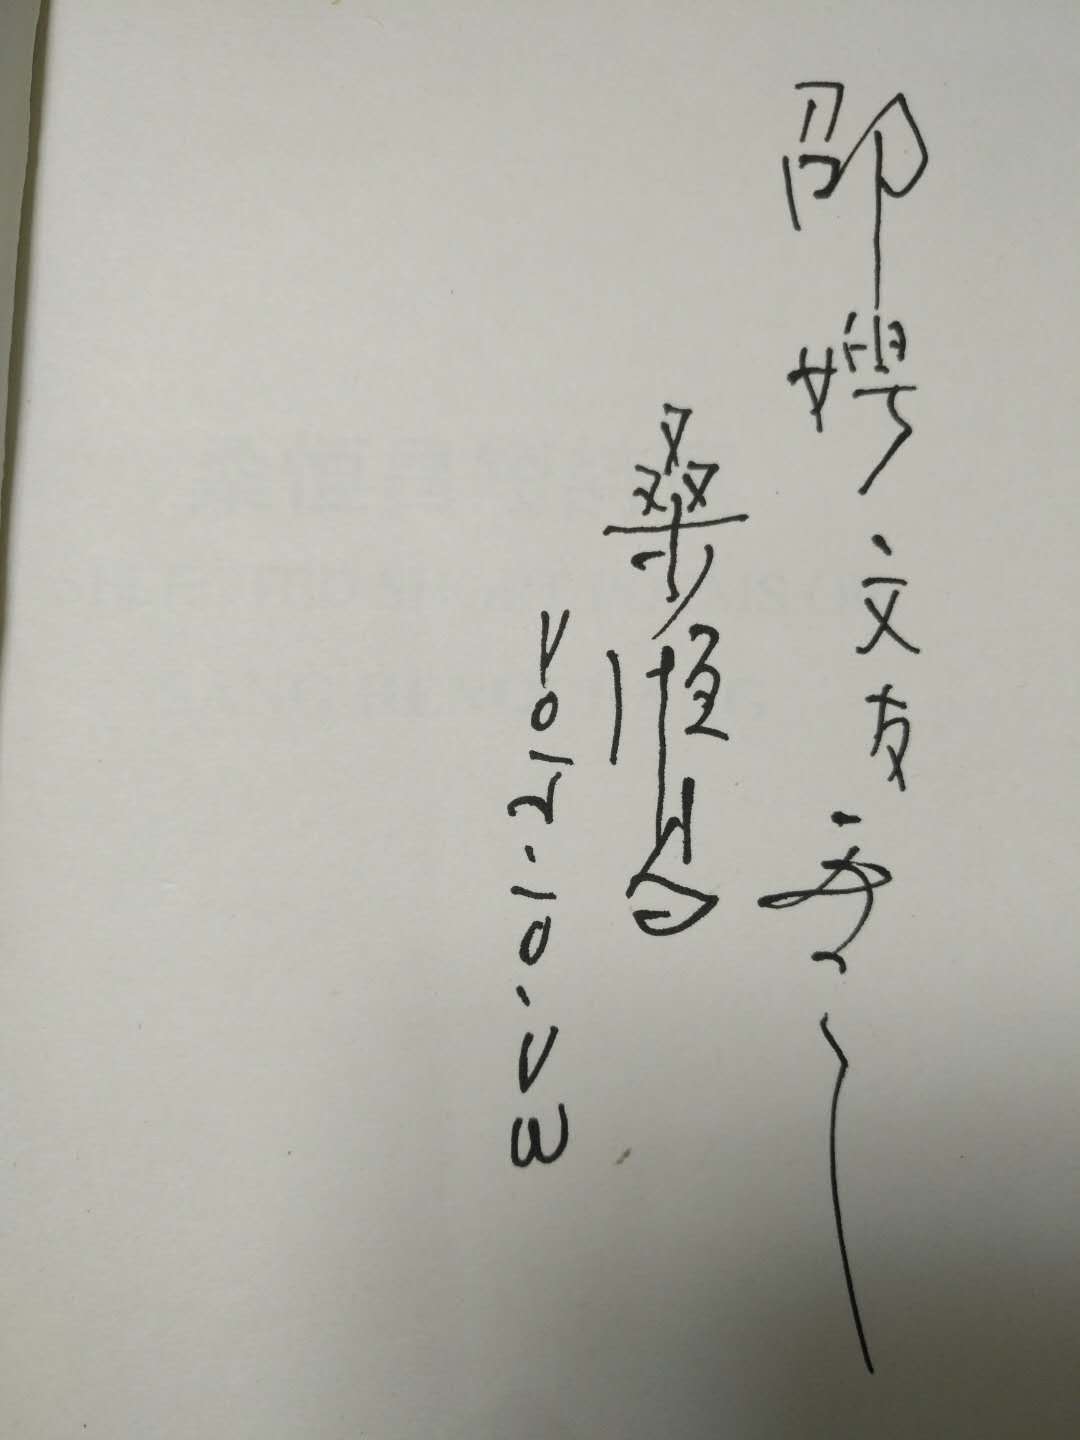 邵娉文友
桑恒昌
2015.10.23